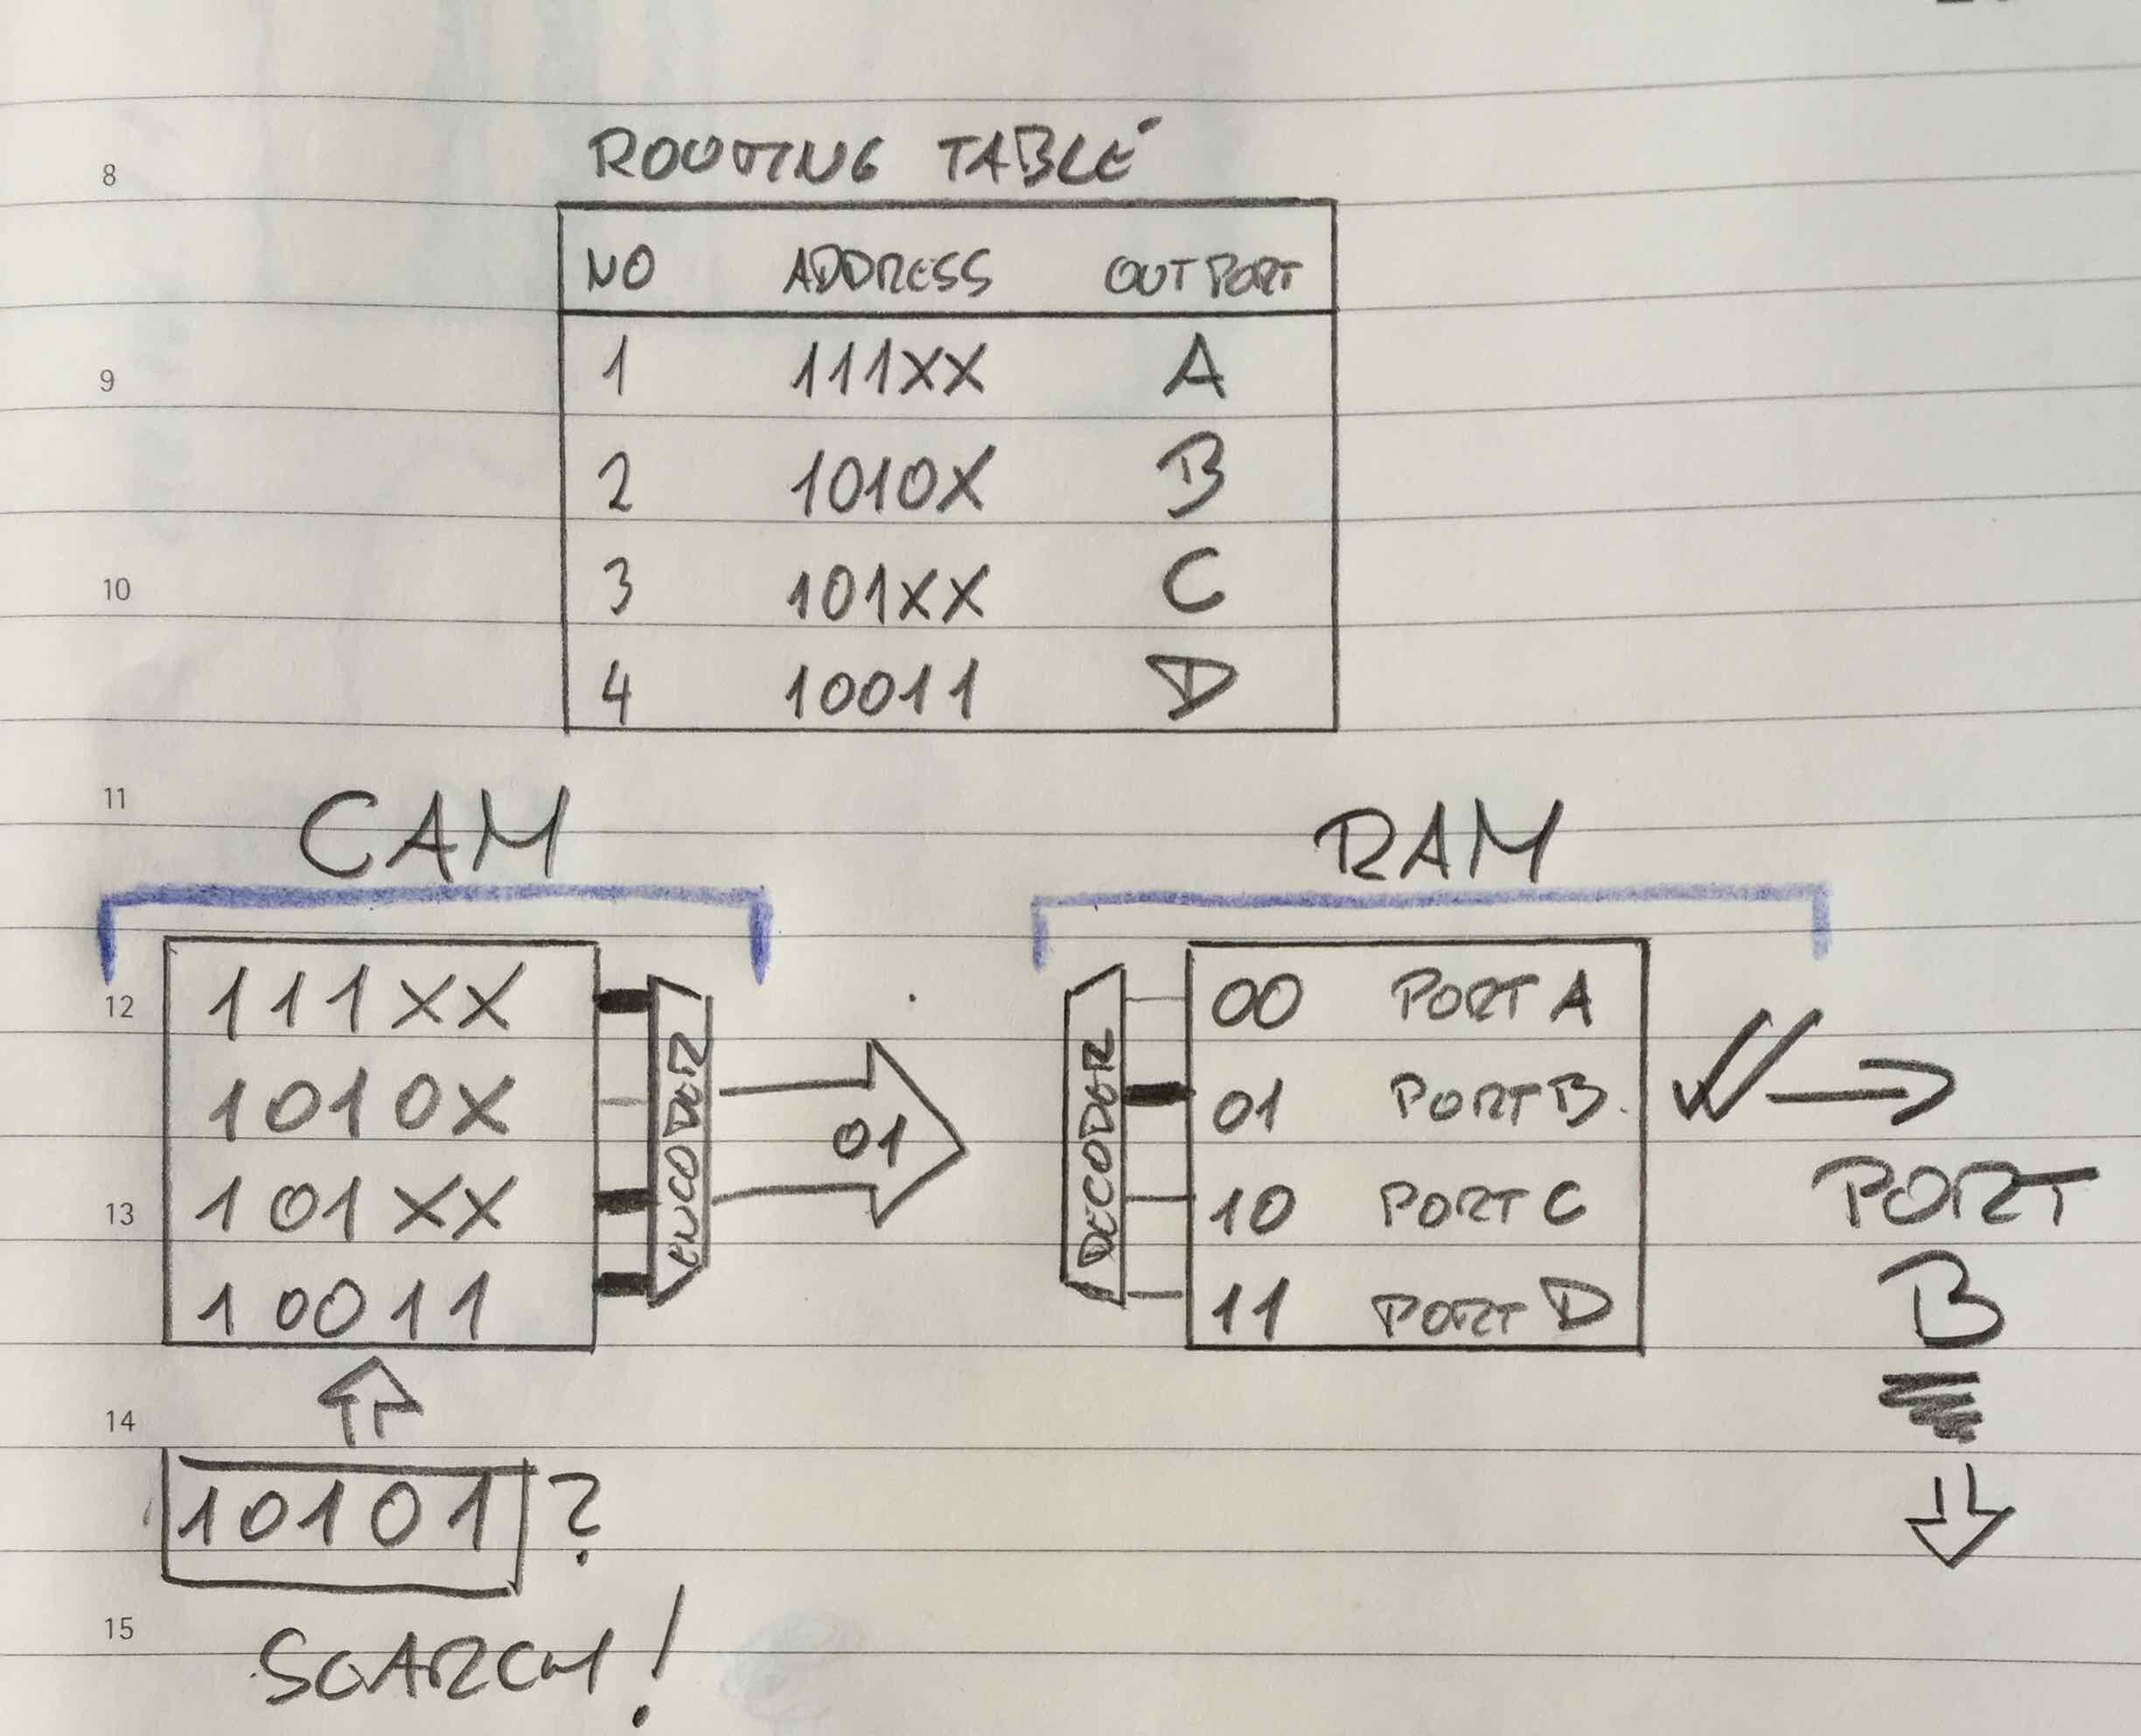 8
ROUTING TABLE
NO ADDRESS OUTPORT
9
1 111XX A
2 1010X B
10
3 101XX C
4 10011 D
11
CAM
RAM
12
111XX
1010X
13
101XX
10011
ENCODER
01
DECODER
00 PORT A
01 PORT B
10 PORT C
11 PORT D
PORT
B
14
10101?
15
SEARCH!